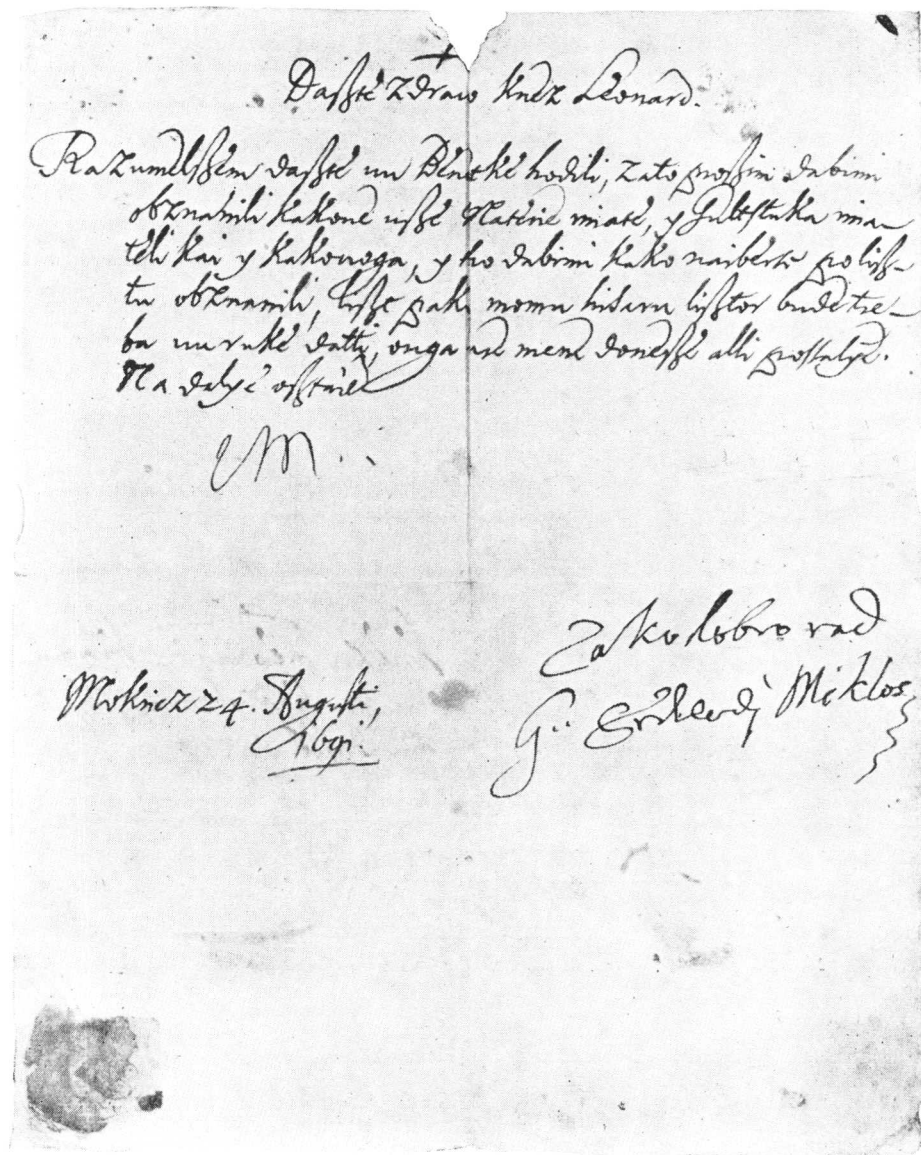 Dasste zdrauo Knez Leonard.
Razumelssem dasste uu Benetke hodili, zato prossim dabimi
obznanili kakove usse Materie imate, y
teli kai y kakovoga, y to dabimi kako naiberse po liss-
tu obznanili, pak momu lisstor bude tre-
ba uu ruke datti, onga mene donesse alli possalye.
Na dalye osstaiem
VM..
Zako dobro rad
G: Erdeodj Miklos
Mokricz 24. Augusti,
1691.